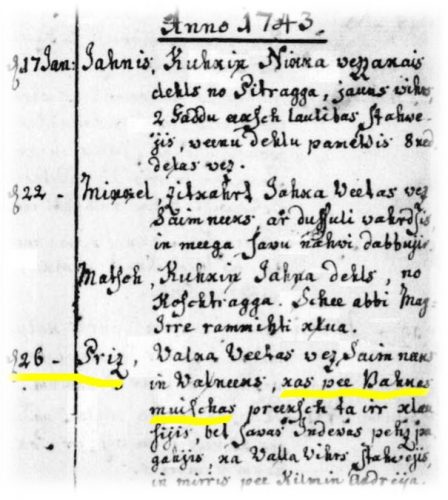 Anno 1743.
17 Jan: Jahnis, Kuhkin Nikka vezzakais
dehls no Pitragga, jauns wihrs,
2 Gaddu eeksch laulibas stahwe-
jis, weenu dehlu pamettis 8 ned
delas vez.
22 - Mikkel, Zitkahrt Jahka Veetas vez
Saimneeks ar dussuli vahrdsis
in meega savu nahvi dabbujis.
Kuhkin Jahna dehls, no
Schee abbi
Irre klua.
26 - Priz, Valka Veetas vez Saimneeks
in kas pee Vahnes
muischas preeksch ta irr klau
sijis, bet savas Indevas pehz
ka Valla Vihrs stahvejis,
in mirris pee Kilmin Andreija.